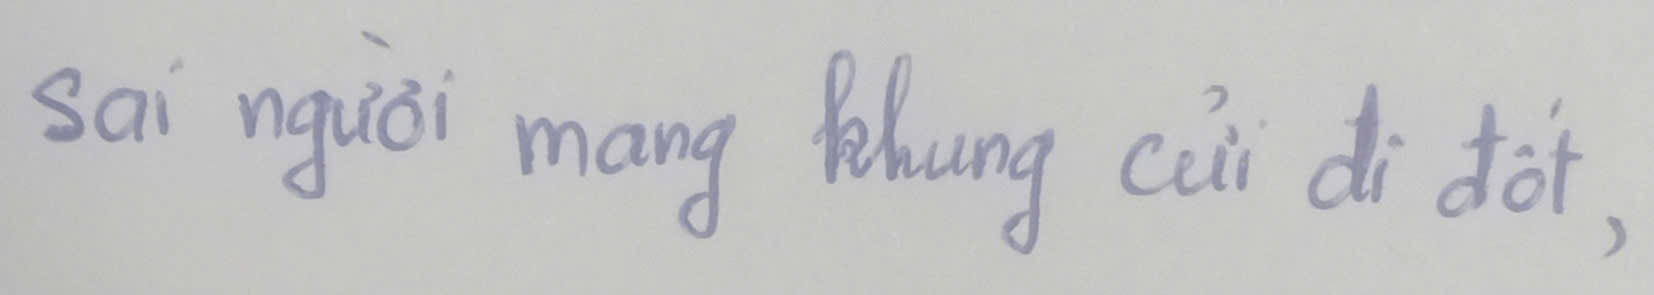 sai người mang khung cửi đi đốt,